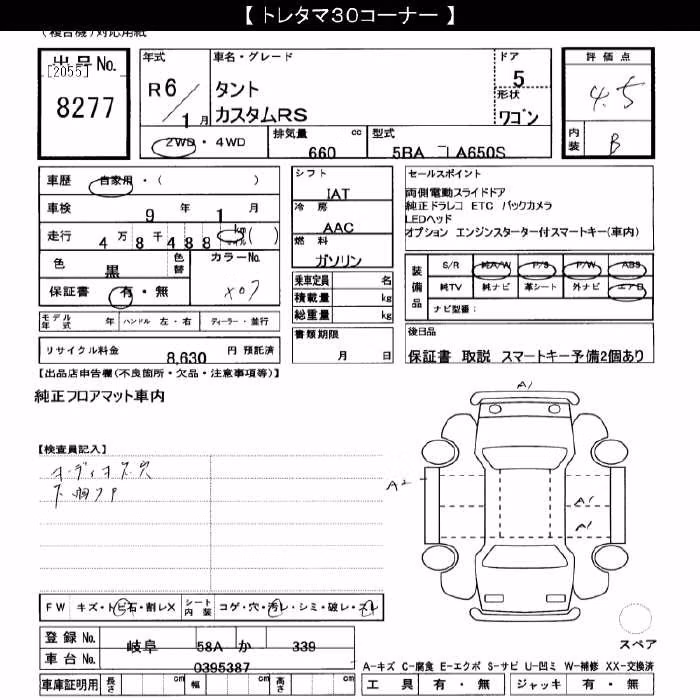 【 トレタマ30コーナー 】
(複合機)対応用紙
出品No.
[2055]
8277
年式
R6/1月
車名・グレード
タント
カスタムRS
ドア
5
形状
ワゴン
評価点
4.5
内装
B
2WD・4WD
排気量 cc
660
型式
5BA LA650S
車歴 自家用・( )
車検 9年 1月
走行 4万8千488 km ( )
色 黒 色替
カラーNo.
X07
保証書 有・無
モデル年式 年 ハンドル 左・右 ディーラー・並行
リサイクル料金 8,630 円 預託済
シフト
IAT
冷房
AAC
燃料
ガソリン
乗車定員 名
積載量 kg
総重量 kg
書類期限
月 日
セールスポイント
両側電動スライドドア
純正ドラレコ ETC バックカメラ
LEDヘッド
オプション エンジンスターター付スマートキー(車内)
装備品
S/R 純A/W P/S P/W ABS
純TV 純ナビ 革シート 外ナビ エアB
ナビ型番:
後日品
保証書 取説 スマートキー予備2個あり
【出品店申告欄(不良箇所・欠品・注意事項等)】
純正フロアマット車内
【検査員記入】
オーディオスス穴
A1
A2
A1
A1
FW キズ・トビ石・割レX シート内装 コゲ・穴・汚レ・シミ・破レ・スレ
登録No. 岐阜 58A か 339
車台No. 0395387
車庫証明用 長さ cm 幅 cm 高さ cm
スペア
A-キズ C-腐食 E-エクボ S-サビ U-凹ミ W-補修 XX-交換済
工具 有・無 ジャッキ 有・無